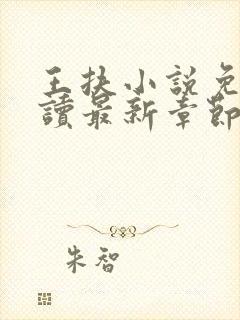 王扶小說免
讀最新章節
朱智